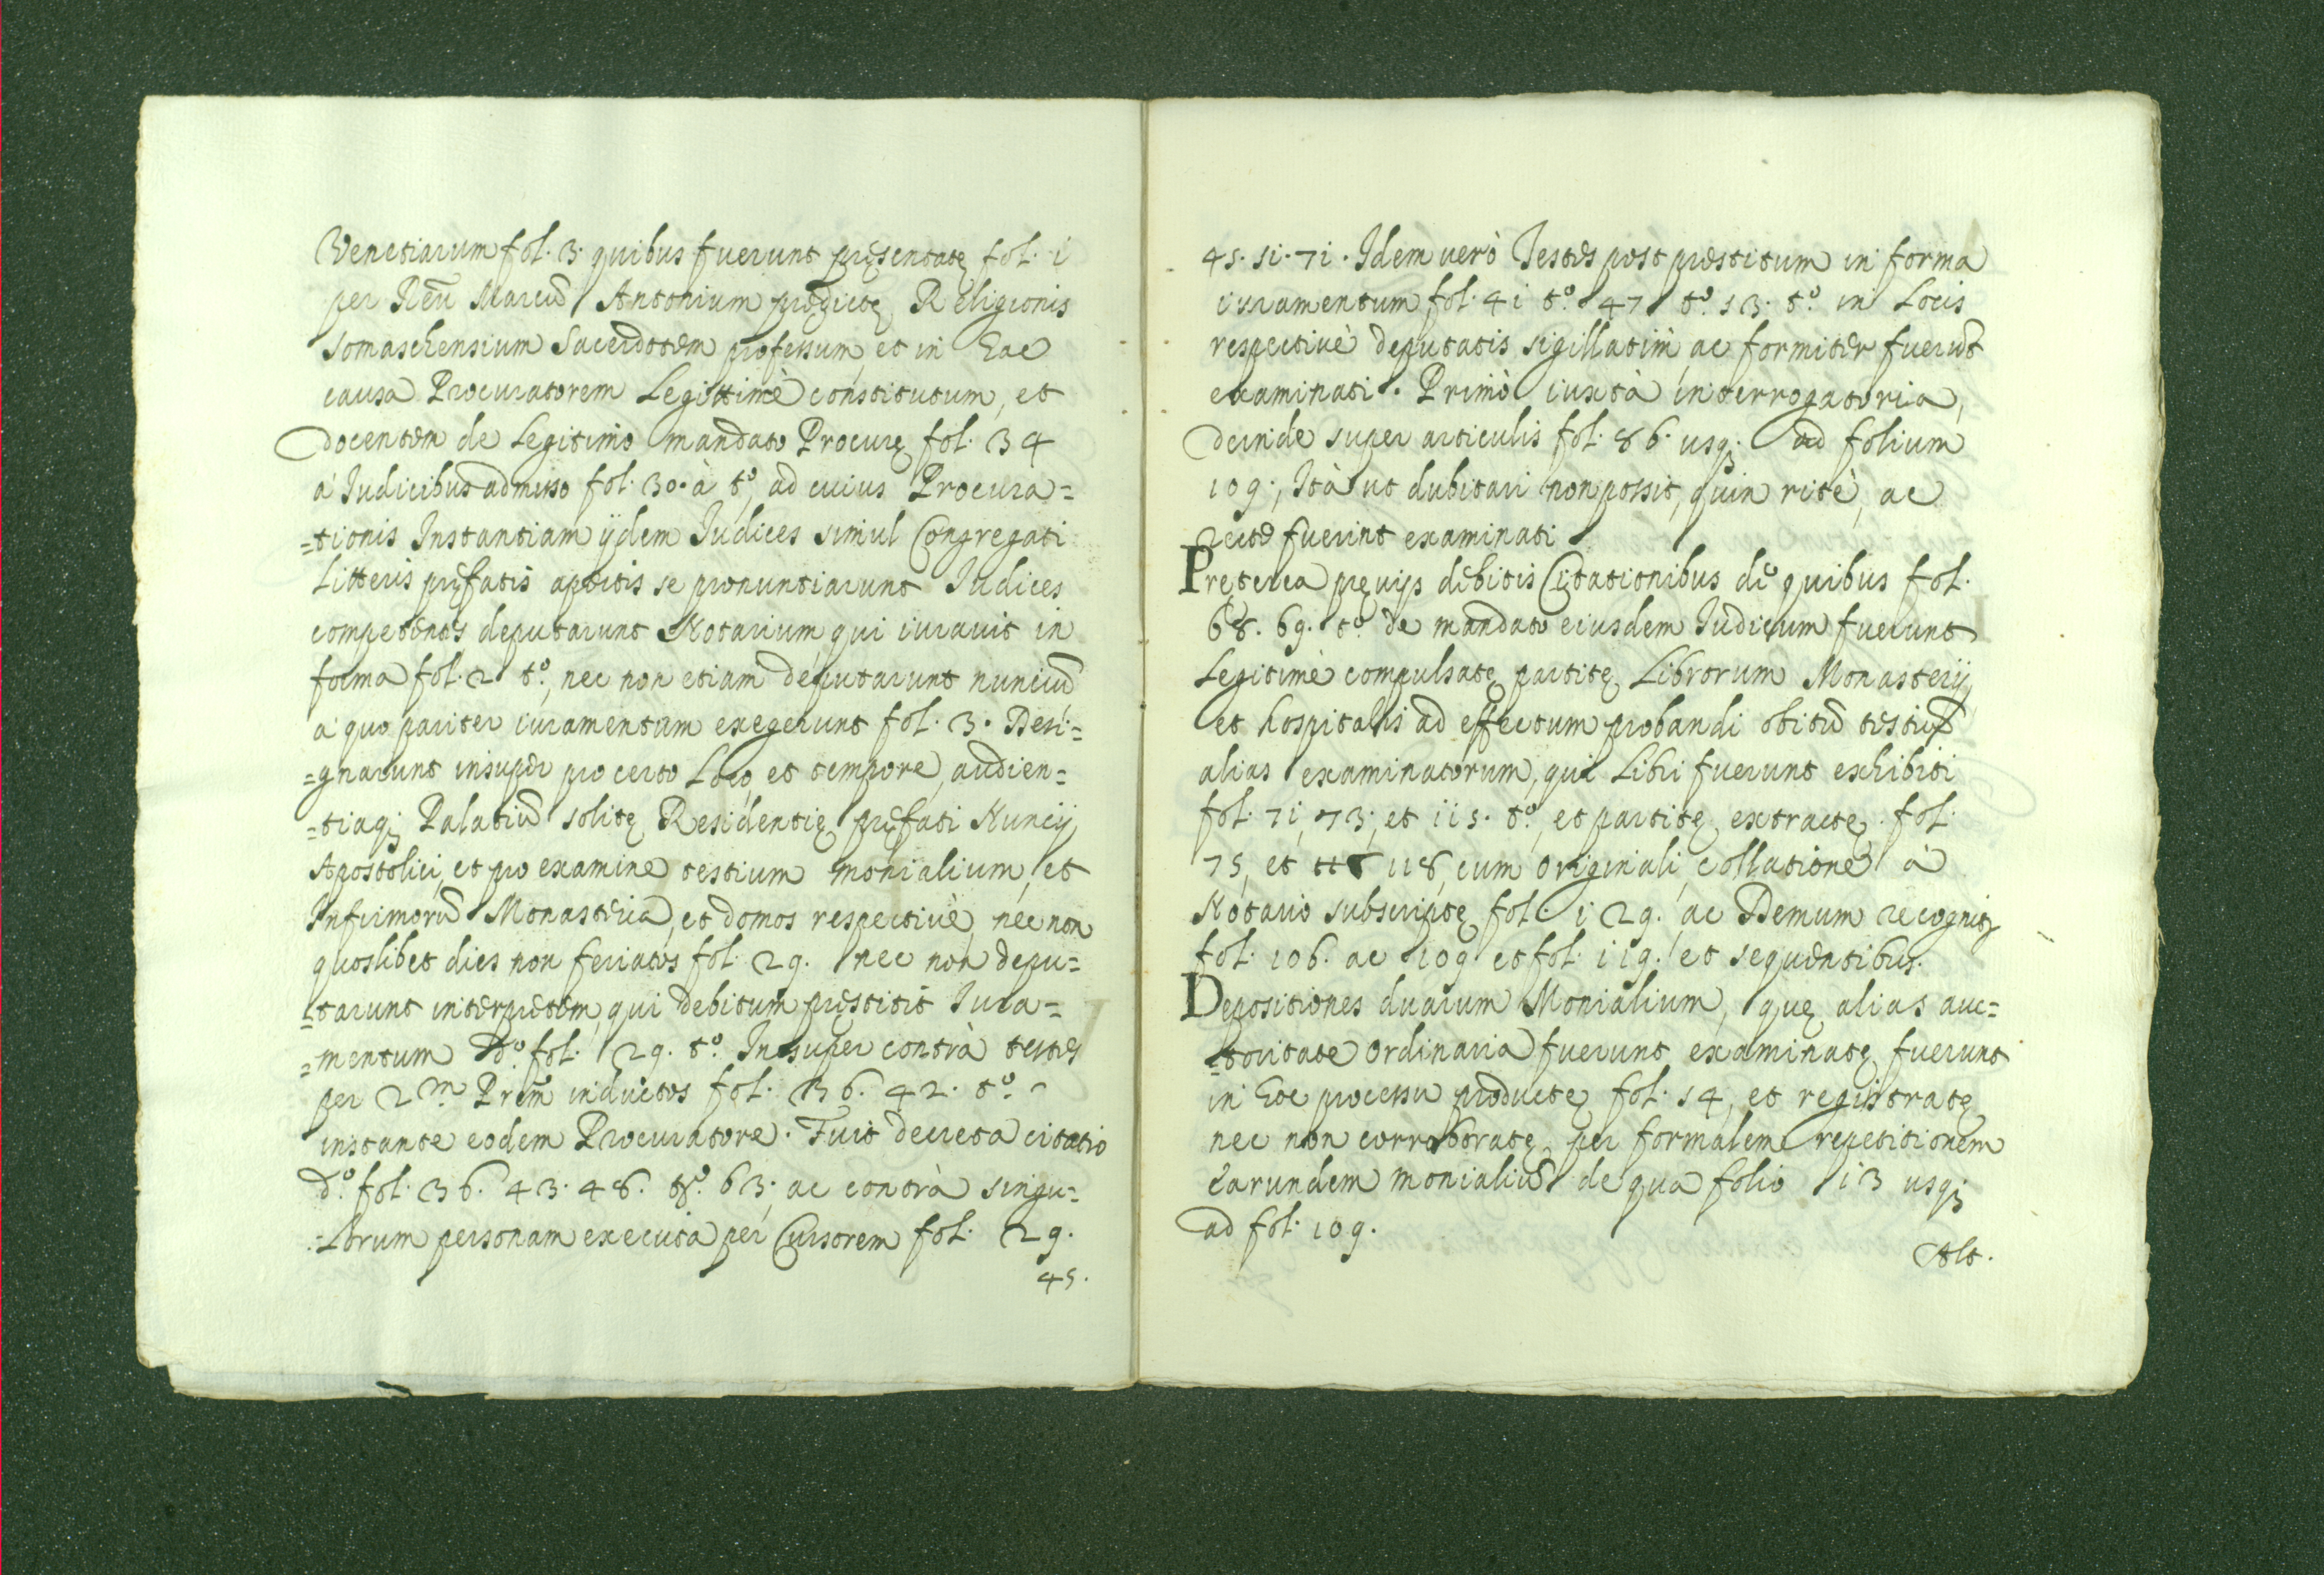 Venetiarum fol. 3. quibus fuerunt pręsentatę fol. i
per Reũ Marcũ Antonium prędictę Religionis
Somaschensium Sacerdotem professum, et in hac
causa Procuratorem Legittimè constitutum, et
docentem de Legitimo mandato Procurę fol. 34
à Judicibus admisso fol. 30. à tº, ad cuius Procura=
=tionis Instantiam ijdem Judices simul Congregati
Litteris pręfatis apertis se pronuntiarunt Judices
competentes deputarunt Notarium, qui iuravit in
forma fol. 2 tº, nec non etiam deputarunt nunciũ
à quo pariter iuramentum exegerunt fol. 3. Desi=
=gnarunt insuper pro certo Loco, et tempore, audien=
=tiaq; Palatiũ solitę Residentię pręfati Nuncij
Apostolici, et pro examine testium monialium, et
Infirmorũ Monasteria, et domos respectivè, nec non
quoslibet dies non feriatos fol. 29. nec non depu=
=tarunt interpretem, qui debitum pręstitit Jura=
=mentum dº fol. 29. tº. Insuper contrà testes
per 2m Prem̃ inductos fol. 36. 42. tº
instante eodem Procuratore. Fuit decreta citatio
dº. fol. 36. 43. 48. tº. 63; ac contrà singu=
=lorum personam executa per Cursorem fol. 29.
45.
45. 51. 71. Idem verò Testes post prestitum in forma
iuramentum fol. 41 tº. 47 tº. 53. tº. in Locis
respectivè deputatis sigillatim, ac formiter fuerũt
examinati. Primò iuxtà interrogatoria,
deinde super articulis fol. 86. usq; ad folium
109; Ità ut dubitari non possit, quin ritè, ac
recte fuerint examinati
Pręterea pręvijs debitis Citationibus de quibus fol.
68. 69. tº. de mandato eiusdem Judicum fuerunt
Legitimè compulsatę partitę Librorum Monasterij,
et hospitalis ad effectum probandi obitũ testiũ
alias examinatorum, qui Libri fuerunt exhibiti
fol. 71, 73; et 115. tº, et partitę extractę fol.
75, et 118, cum originali collatione à
Notario subscriptę fol. 129. ac Demum recognitę
fol. 106. ac 109 et fol. 119. et sequentibus.
Depositiones duarum Monialium, quę alias auc=
=toritate ordinaria fuerunt examinatę fuerunt
in hoc processu productę fol. 54, et registratę
nec non corroboratę per formalem repetitionem
earundem monialiũ de qua folio 13 usq;
ad fol. 109.
Alt.